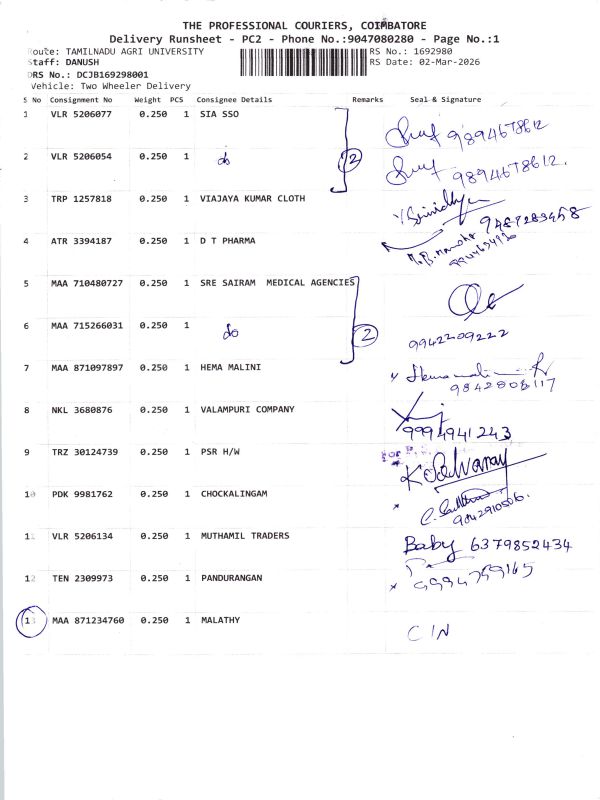 THE PROFESSIONAL COURIERS, COIMBATORE
Delivery Runsheet - PC2 - Phone No.:9047080280 - Page No.:1
Route: TAMILNADU AGRI UNIVERSITY RS No.: 1692980
Staff: DANUSH RS Date: 02-Mar-2026
DRS No.: DCJB169298001
Vehicle: Two Wheeler Delivery
S No Consignment No Weight PCS Consignee Details Remarks Seal & Signature
1 VLR 5206077 0.250 1 SIA SSO 9894678612
2 VLR 5206054 0.250 1 do 2 9894678612.
3 TRP 1257818 0.250 1 VIAJAYA KUMAR CLOTH Srinidhya 9487283458
4 ATR 3394187 0.250 1 D T PHARMA
5 MAA 710480727 0.250 1 SRE SAIRAM MEDICAL AGENCIES
6 MAA 715266031 0.250 1 do 2 9942209222
7 MAA 871097897 0.250 1 HEMA MALINI Hemamalini R
9842808117
8 NKL 3680876 0.250 1 VALAMPURI COMPANY
9994941243
9 TRZ 30124739 0.250 1 PSR H/W for P.
10 PDK 9981762 0.250 1 CHOCKALINGAM
9042910506.
11 VLR 5206134 0.250 1 MUTHAMIL TRADERS Baby 6379852434
12 TEN 2309973 0.250 1 PANDURANGAN
13 MAA 871234760 0.250 1 MALATHY CIN